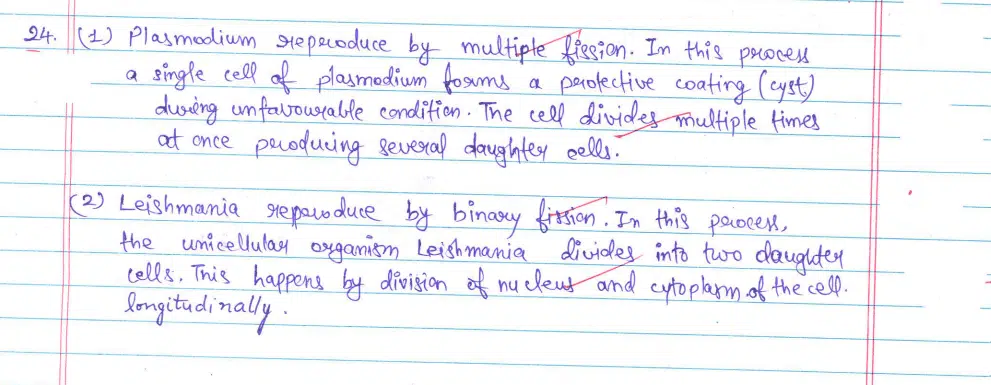 24. (1) Plasmodium reproduce by multiple fission. In this process
a single cell of plasmodium forms a protective coating (cyst)
during unfavourable condition. The cell divides multiple times
at once producing several daughter cells.
(2) Leishmania reproduce by binary fission. In this process,
the unicellular organism Leishmania divides into two daughter
cells. This happens by division of nucleus and cytoplasm of the cell.
longitudinally.